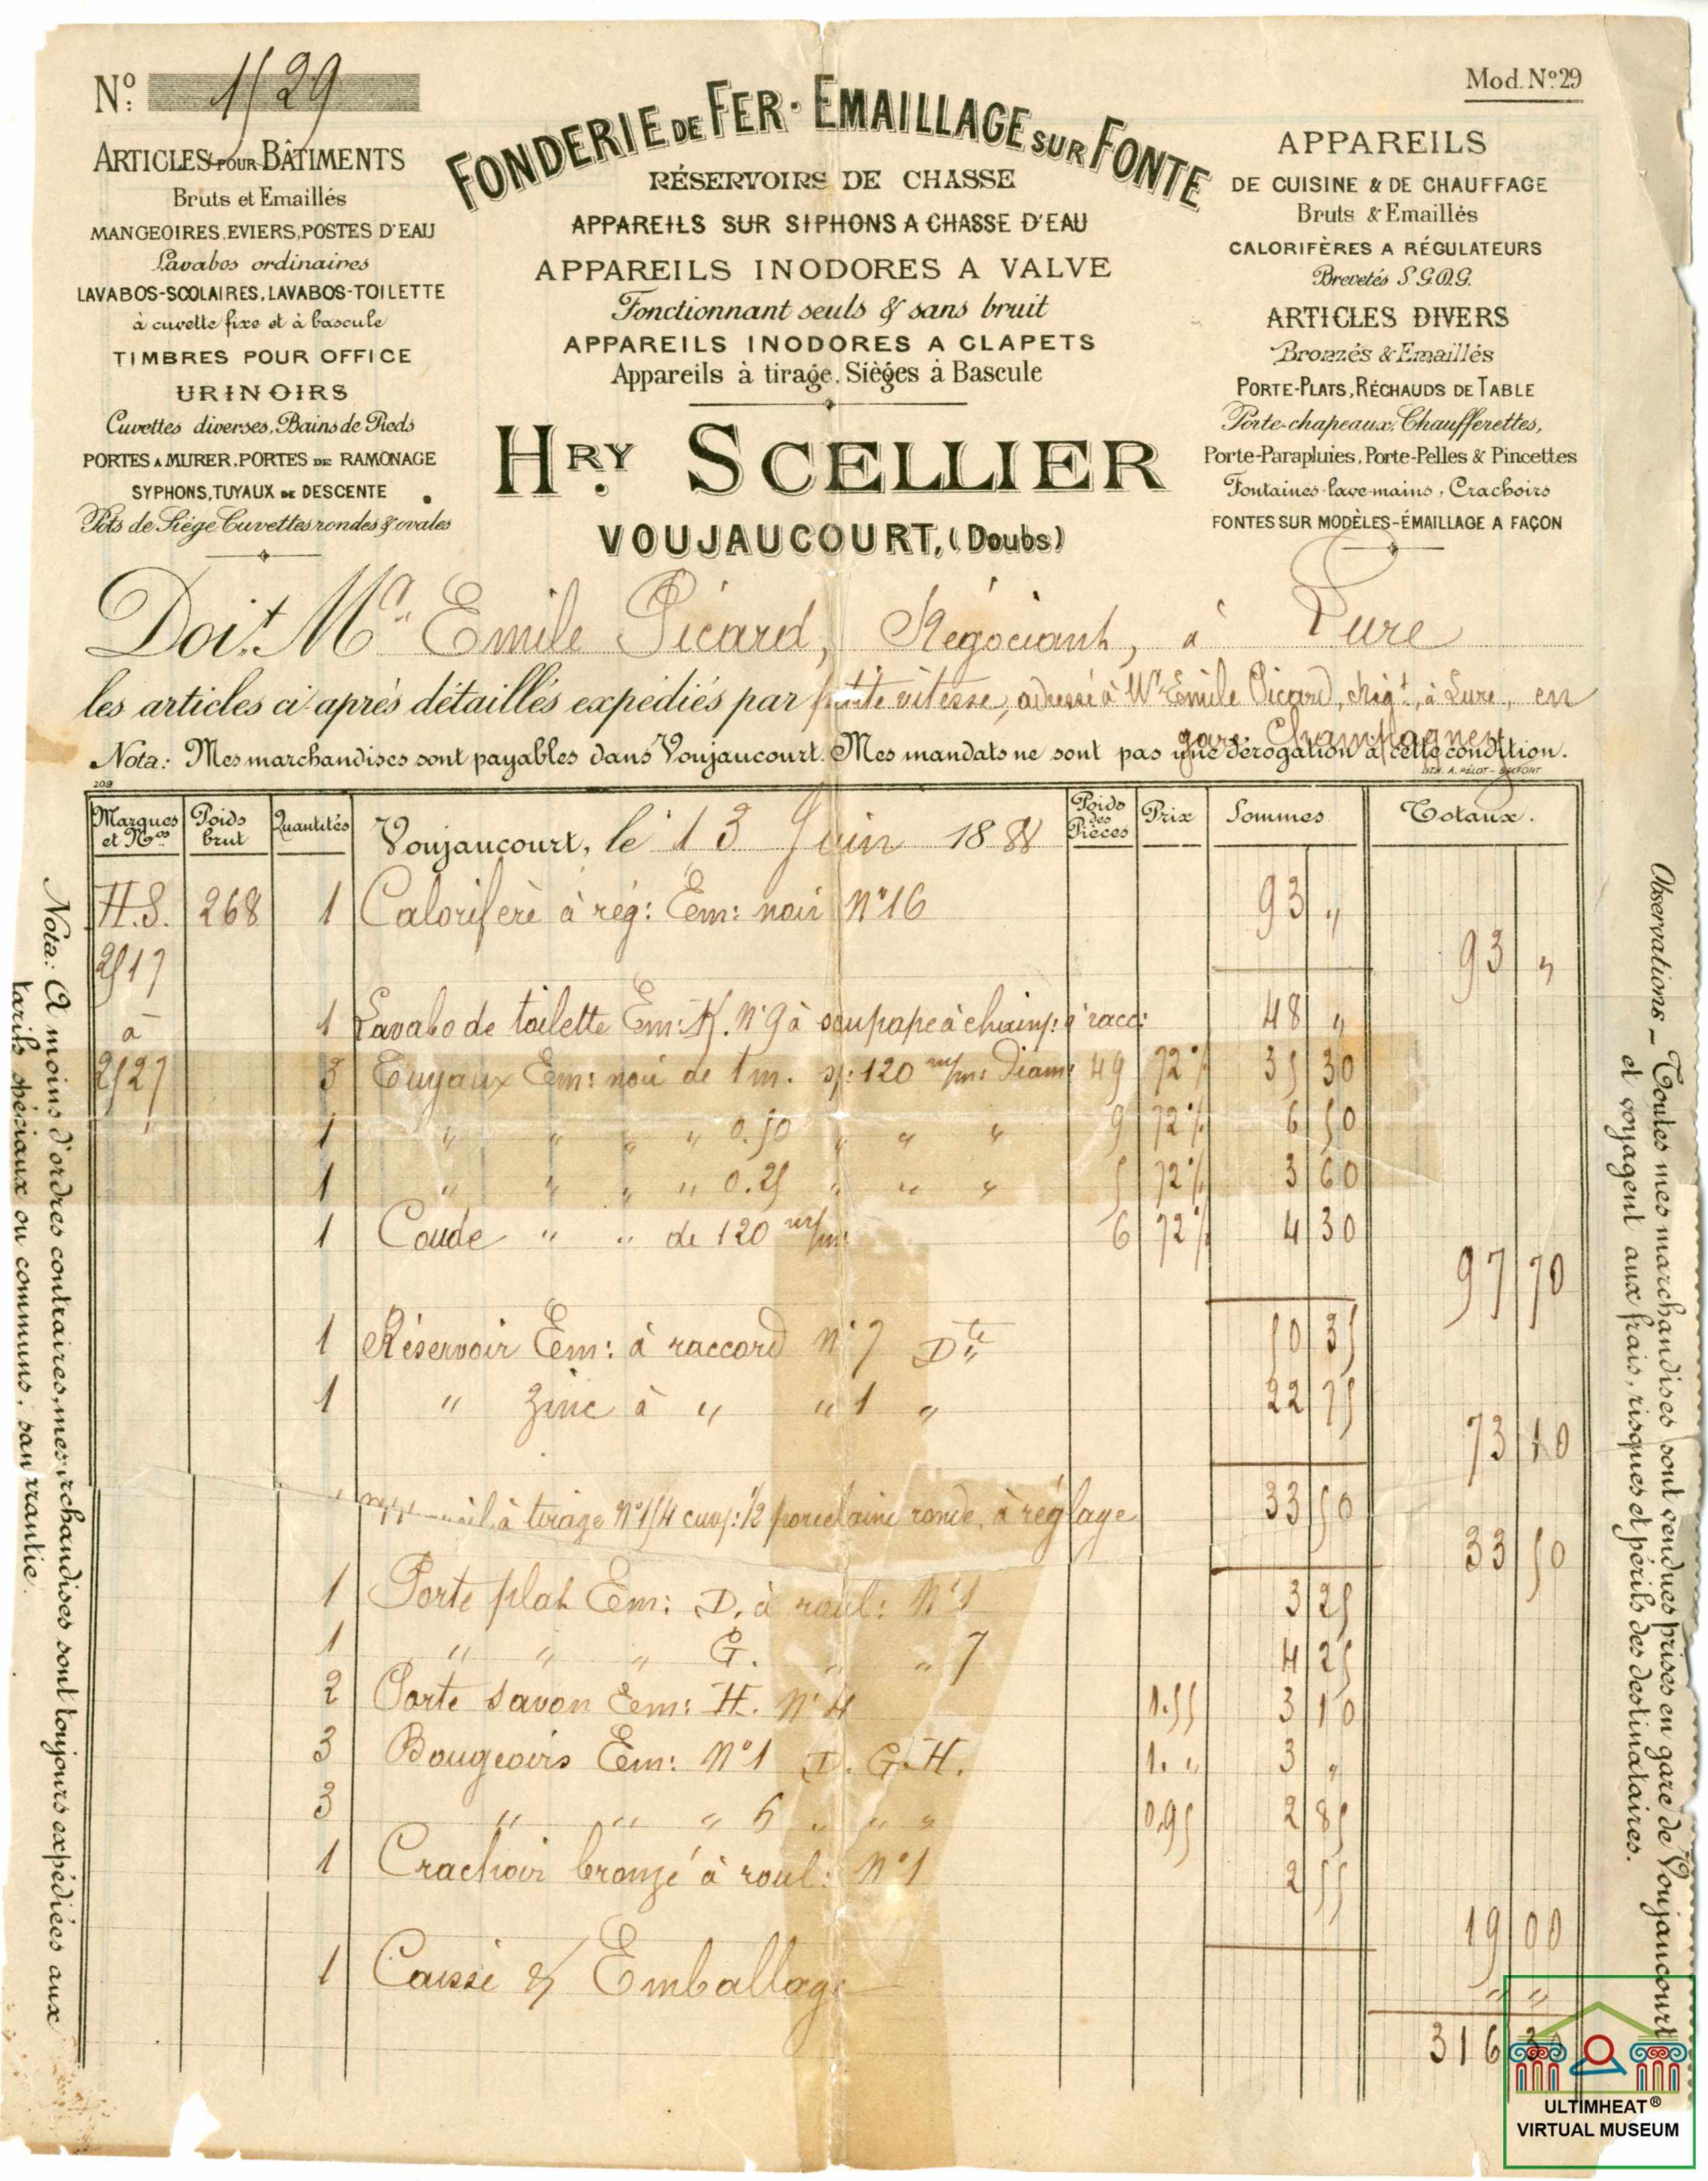 Nº. 1529
Mod. Nº 29
ARTICLES POUR BÂTIMENTS
Bruts et Emaillés
MANGEOIRES, EVIERS, POSTES D'EAU
Lavabos ordinaires
LAVABOS-SCOLAIRES, LAVABOS-TOILETTE
à cuvette fixe et à bascule
TIMBRES POUR OFFICE
URINOIRS
Cuvettes diverses, Bains de Pieds
PORTES A MURER, PORTES DE RAMONAGE
SYPHONS, TUYAUX DE DESCENTE
Pots de Siège Cuvettes rondes & ovales
FONDERIE DE FER - EMAILLAGE SUR FONTE
RÉSERVOIRS DE CHASSE
APPAREILS SUR SIPHONS A CHASSE D'EAU
APPAREILS INODORES A VALVE
Fonctionnant seuls & sans bruit
APPAREILS INODORES A CLAPETS
Appareils à tirage, Sièges à Bascule
HRY. SCELLIER
VOUJAUCOURT, (Doubs)
APPAREILS
DE CUISINE & DE CHAUFFAGE
Bruts & Emaillés
CALORIFÈRES A RÉGULATEURS
Brevetés S.G.D.G.
ARTICLES DIVERS
Bronzés & Emaillés
PORTE-PLATS, RÉCHAUDS DE TABLE
Porte-chapeaux, Chaufferettes,
Porte-Parapluies, Porte-Pelles & Pincettes
Fontaines-lave-mains, Crachoirs
FONTES SUR MODÈLES-ÉMAILLAGE A FAÇON
Doit Mr. Emile Picard, Négociant, à Lure
les articles ci-après détaillés expédiés par petite vitesse, adressé à Mr Emile Picard, nég.t, à Lure, en
gare Champagney
Nota: Mes marchandises sont payables dans Voujaucourt. Mes mandats ne sont pas une dérogation à cette condition.
LITH. A. PÉLOT - BELFORT
209
Marques et Nos Poids brut Quantités Voujaucourt, le 13 Juin 1888 Poids des Pièces Prix Sommes Totaux.
H.S. 268 1 Calorifère à rég: Em: noir Nº 16 93 "
2517 93 "
à 1 Lavabo de toilette Em: K. Nº 9 à soupape à chain: à racc: 48 "
2527 3 Tuyaux Em: noir de 1 m. s/: 120 m/m: Diam: 49 72 % 35 30
1 " " " " 0.50 " " " 9 72 % 6 50
1 " " " " 0.25 " " " 5 72 % 3 60
1 Coude " " de 120 m/m: 6 72 % 4 30
97 70
1 Réservoir Em: à raccord Nº 7 Dte 50 35
1 " zinc à " " 1 " 22 75
73 10
à tirage Nº 154 cuv: 1/2 porcelaine ronde, à réglage 33 50
33 50
1 Porte plat Em: D. à roul: Nº 1 3 25
1 " " " G. " " 7 4 25
2 Porte savon Em: H. Nº 4 1.55 3 10
3 Bougeoirs Em: Nº 1 D. G. H. 1. " 3 "
3 " " " 6 " " " 0.95 2 85
1 Crachoir bronzé à roul: Nº 1 2 55
19 00
1 Caisse & Emballage " "
316 30
Nota: A moins d'ordres contraires, mes marchandises sont toujours expédiées aux
tarifs spéciaux ou communs, sans garantie.
Observations - Toutes mes marchandises sont vendues prises en gare de Voujaucourt
et voyagent aux frais, risques et périls des destinataires.
ULTIMHEAT®
VIRTUAL MUSEUM